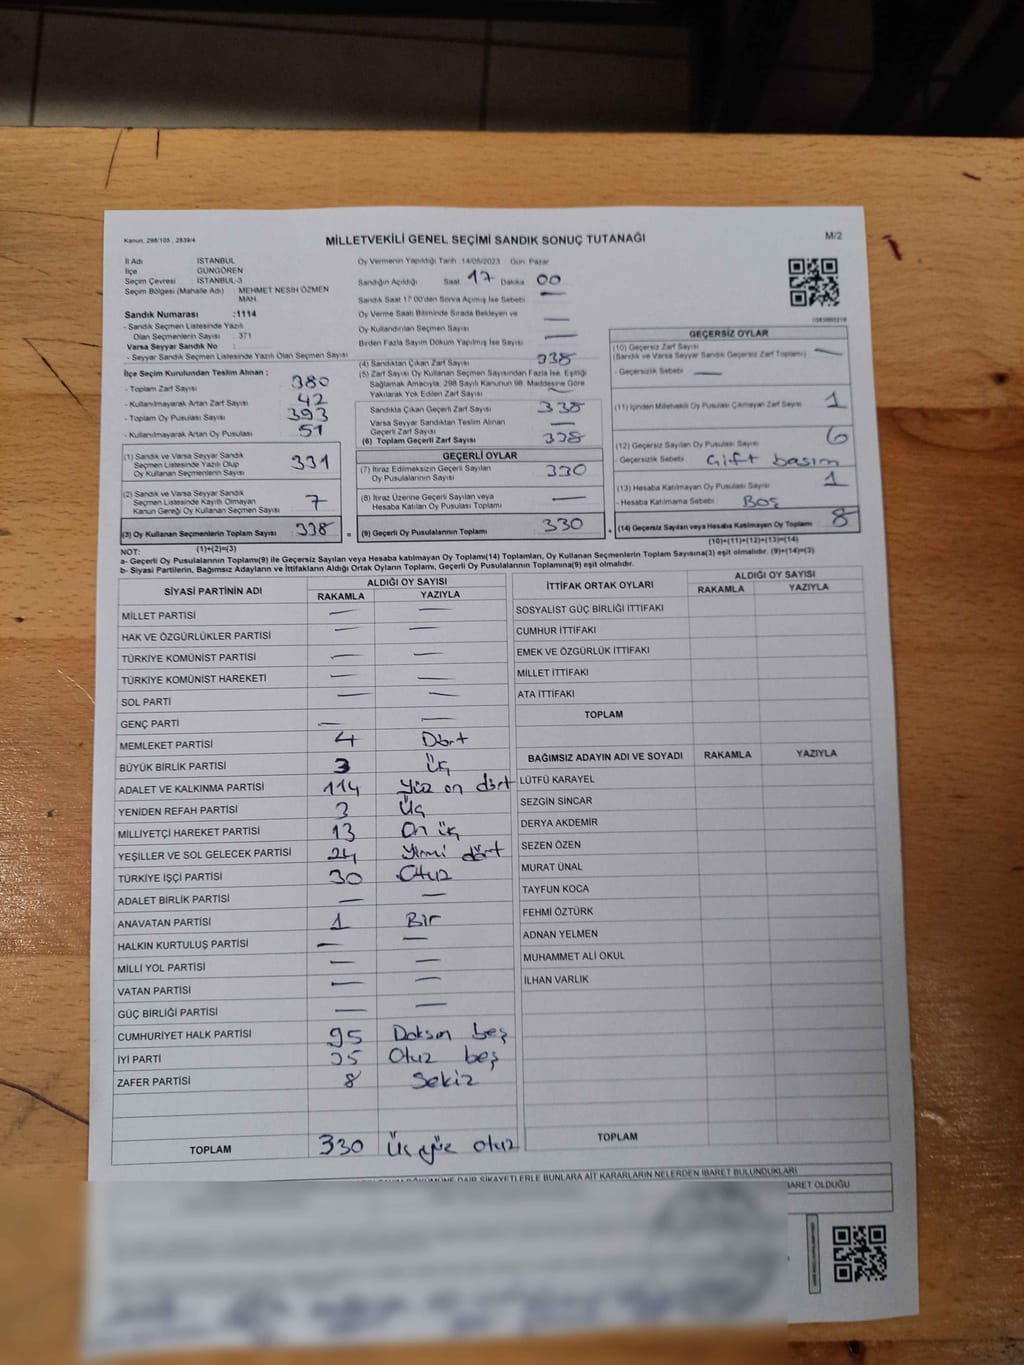 Kanun: 298/105 , 2839/4
MİLLETVEKİLİ GENEL SEÇİMİ SANDIK SONUÇ TUTANAĞI
M/2
İl Adı : İSTANBUL
İlçe : GÜNGÖREN
Seçim Çevresi : İSTANBUL-3
Seçim Bölgesi (Mahalle Adı) : MEHMET NESİH ÖZMEN
MAH
Sandık Numarası :1114
- Sandık Seçmen Listesinde Yazılı
Olan Seçmenlerin Sayısı : 371
Varsa Seyyar Sandık No :
- Seyyar Sandık Seçmen Listesinde Yazılı Olan Seçmen Sayısı
İlçe Seçim Kurulundan Teslim Alınan ;
- Toplam Zarf Sayısı 380
- Kullanılmayarak Artan Zarf Sayısı 42
- Toplam Oy Pusulası Sayısı 393
- Kullanılmayarak Artan Oy Pusulası 51
(1) Sandık ve Varsa Seyyar Sandık
Seçmen Listesinde Yazılı Olup
Oy Kullanan Seçmenlerin Sayısı 331
(2) Sandık ve Varsa Seyyar Sandık
Seçmen Listesinde Kayıtlı Olmayan
Kanun Gereği Oy Kullanan Seçmen Sayısı 7
(3) Oy Kullanan Seçmenlerin Toplam Sayısı 338
(1)+(2)=(3)
Oy Vermenin Yapıldığı Tarih :14/05/2023 Gün Pazar
Sandığın Açıldığı Saat 17 Dakika 00
Sandık Saat 17:00'den Sonra Açılmış İse Sebebi —
Oy Verme Saati Bitiminde Sırada Bekleyen ve
Oy Kullandırılan Seçmen Sayısı —
Birden Fazla Sayım Döküm Yapılmış İse Sayısı —
(4) Sandıktan Çıkan Zarf Sayısı 338
(5) Zarf Sayısı Oy Kullanan Seçmen Sayısından Fazla İse, Eşitliği
Sağlamak Amacıyla, 298 Sayılı Kanunun 98. Maddesine Göre
Yakılarak Yok Edilen Zarf Sayısı —
Sandıkta Çıkan Geçerli Zarf Sayısı 338
Varsa Seyyar Sandıktan Teslim Alınan
Geçerli Zarf Sayısı —
(6) Toplam Geçerli Zarf Sayısı 338
GEÇERLİ OYLAR
(7) İtiraz Edilmeksizin Geçerli Sayılan
Oy Pusulalarının Sayısı 330
(8) İtiraz Üzerine Geçerli Sayılan veya
Hesaba Katılan Oy Pusulası Sayısı —
= (9) Geçerli Oy Pusulalarının Toplamı 330
GEÇERSİZ OYLAR
(10) Geçersiz Zarf Sayısı
(Sandık ve Varsa Seyyar Sandık Geçersiz Zarf Toplamı) —
- Geçersizlik Sebebi : —
(11) İçinden Milletvekili Oy Pusulası Çıkmayan Zarf Sayısı 1
(12) Geçersiz Sayılan Oy Pusulası Sayısı 6
- Geçersizlik Sebebi : Çift basım
(13) Hesaba Katılmayan Oy Pusulası Sayısı 1
- Hesaba Katılmama Sebebi : Boş
+ (14) Geçersiz Sayılan veya Hesaba Katılmayan Oy Toplamı 8
(10)+(11)+(12)+(13)=(14)
NOT:
a- Geçerli Oy Pusulalarının Toplamı(9) ile Geçersiz Sayılan veya Hesaba katılmayan Oy Toplamı(14) Toplamları, Oy Kullanan Seçmenlerin Toplam Sayısına(3) eşit olmalıdır. (9)+(14)=(3)
b- Siyasi Partilerin, Bağımsız Adayların ve İttifakların Aldığı Ortak Oyların Toplamı, Geçerli Oy Pusulalarının Toplamına(9) eşit olmalıdır.
SİYASİ PARTİNİN ADI ALDIĞI OY SAYISI
RAKAMLA YAZIYLA
MİLLET PARTİSİ — —
HAK VE ÖZGÜRLÜKLER PARTİSİ — —
TÜRKİYE KOMÜNİST PARTİSİ — —
TÜRKİYE KOMÜNİST HAREKETİ — —
SOL PARTİ — —
GENÇ PARTİ — —
MEMLEKET PARTİSİ 4 Dört
BÜYÜK BİRLİK PARTİSİ 3 Üç
ADALET VE KALKINMA PARTİSİ 114 Yüz on dört
YENİDEN REFAH PARTİSİ 3 Üç
MİLLİYETÇİ HAREKET PARTİSİ 13 On üç
YEŞİLLER VE SOL GELECEK PARTİSİ 24 Yirmi dört
TÜRKİYE İŞÇİ PARTİSİ 30 Otuz
ADALET BİRLİK PARTİSİ — —
ANAVATAN PARTİSİ 1 Bir
HALKIN KURTULUŞ PARTİSİ — —
MİLLİ YOL PARTİSİ — —
VATAN PARTİSİ — —
GÜÇ BİRLİĞİ PARTİSİ — —
CUMHURİYET HALK PARTİSİ 95 Doksan beş
İYİ PARTİ 35 Otuz beş
ZAFER PARTİSİ 8 Sekiz
TOPLAM 330 Üç yüz otuz
İTTİFAK ORTAK OYLARI ALDIĞI OY SAYISI
RAKAMLA YAZIYLA
SOSYALİST GÜÇ BİRLİĞİ İTTİFAKI
CUMHUR İTTİFAKI
EMEK VE ÖZGÜRLÜK İTTİFAKI
MİLLET İTTİFAKI
ATA İTTİFAKI
TOPLAM
BAĞIMSIZ ADAYIN ADI VE SOYADI RAKAMLA YAZIYLA
LÜTFÜ KARAYEL
SEZGİN SİNCAR
DERYA AKDEMİR
SEZEN ÖZEN
MURAT ÜNAL
TAYFUN KOCA
FEHMİ ÖZTÜRK
ADNAN YELMEN
MUHAMMET ALİ OKUL
İLHAN VARLIK
TOPLAM
DÖKÜMÜNE DAİR ŞİKAYETLERLE BUNLARA AİT KARARLARIN NELERDEN İBARET BULUNDUKLARI
İBARET OLDUĞU